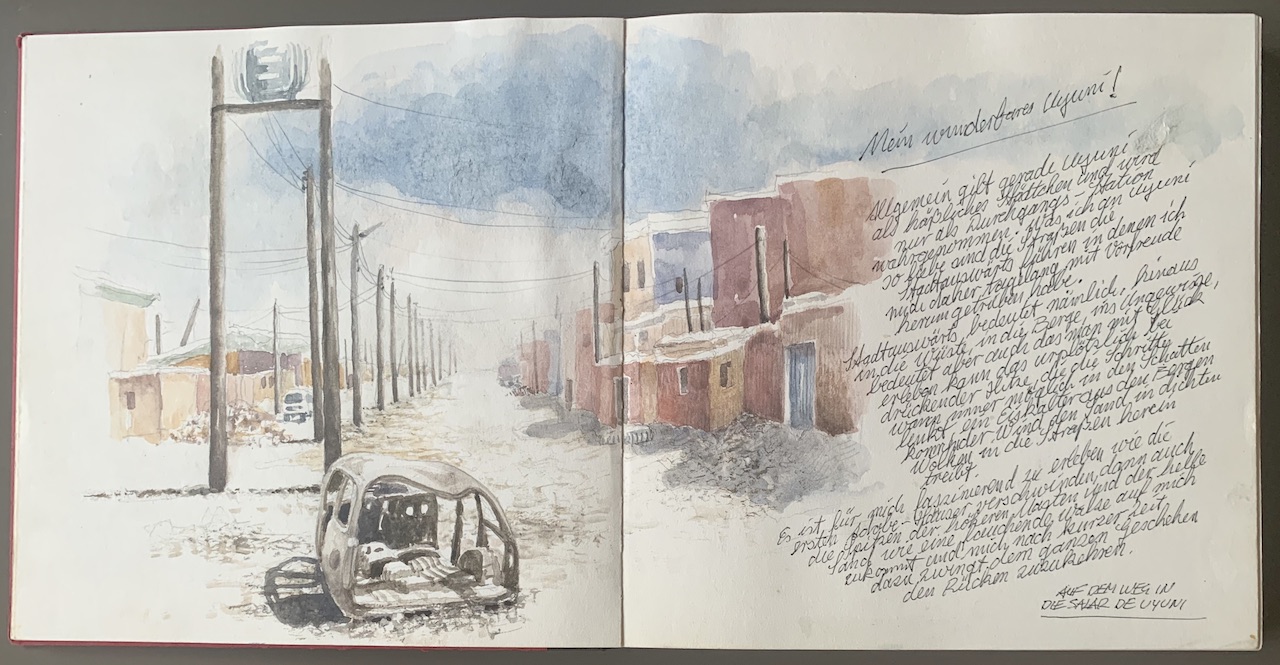 Mein wunderbares Uyuni!
Allgemein gilt gerade Uyuni
als häßliches Städtchen und wird
nur als Durchgangs-Station
wahrgenommen. Was ich an Uyuni
so liebe sind die Straßen die
stadtauswärts führen in denen ich
mich daher tagelang mit Vorfreude
herumgetrieben habe.
Stadtauswärts bedeutet nämlich, hinaus
in die Wüste, in die Berge, ins Ungewisse,
bedeutet aber auch das man mit Glück
erleben kann das urplötzlich bei
drückender Hitze, die die Schritte
wann immer möglich in den Schatten
lenkt, ein Eiskalter aus den Bergen
kommender Wind den Sand in dichten
Wolken in die Straßen herein
treibt.
Es ist für mich faszinierend zu erleben wie die
ersten Adobe-Häuser verschwinden, dann auch
die Spitzen der höheren Masten und der helle
Sand wie eine fauchende Walze auf mich
zukommt und mich nach kurzer Zeit
dazu zwingt dem ganzen Geschehen
den Rücken zuzukehren.
AUF DEM WEG IN
DIE SALAR DE UYUNI